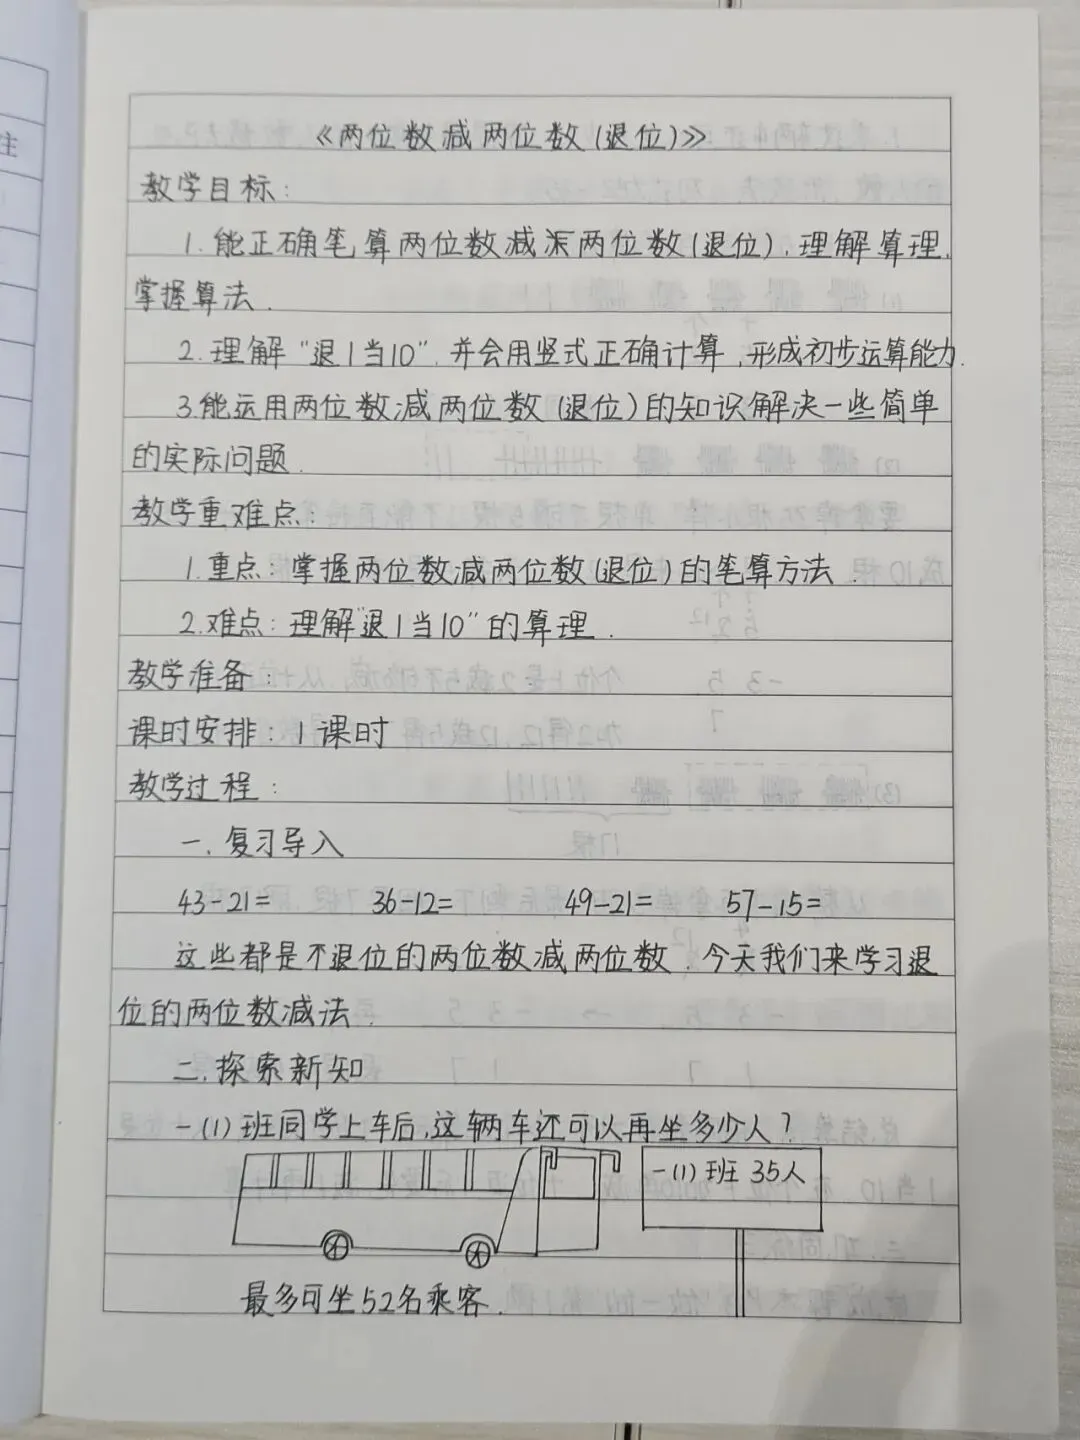 注
《两位数减两位数(退位)》
教学目标:
1.能正确笔算两位数减两位数(退位),理解算理,
掌握算法.
2.理解“退1当10”,并会用竖式正确计算,形成初步运算能力.
3.能运用两位数减两位数(退位)的知识解决一些简单
的实际问题.
教学重难点:
1.重点:掌握两位数减两位数(退位)的笔算方法.
2.难点:理解“退1当10”的算理.
教学准备:
课时安排:1课时
教学过程:
一.复习导入
43-21= 36-12= 49-21= 57-15=
这些都是不退位的两位数减两位数.今天我们来学习退
位的两位数减法.
二.探索新知
一(1)班同学上车后,这辆车还可以再坐多少人?
一(1)班 35人
最多可坐52名乘客.